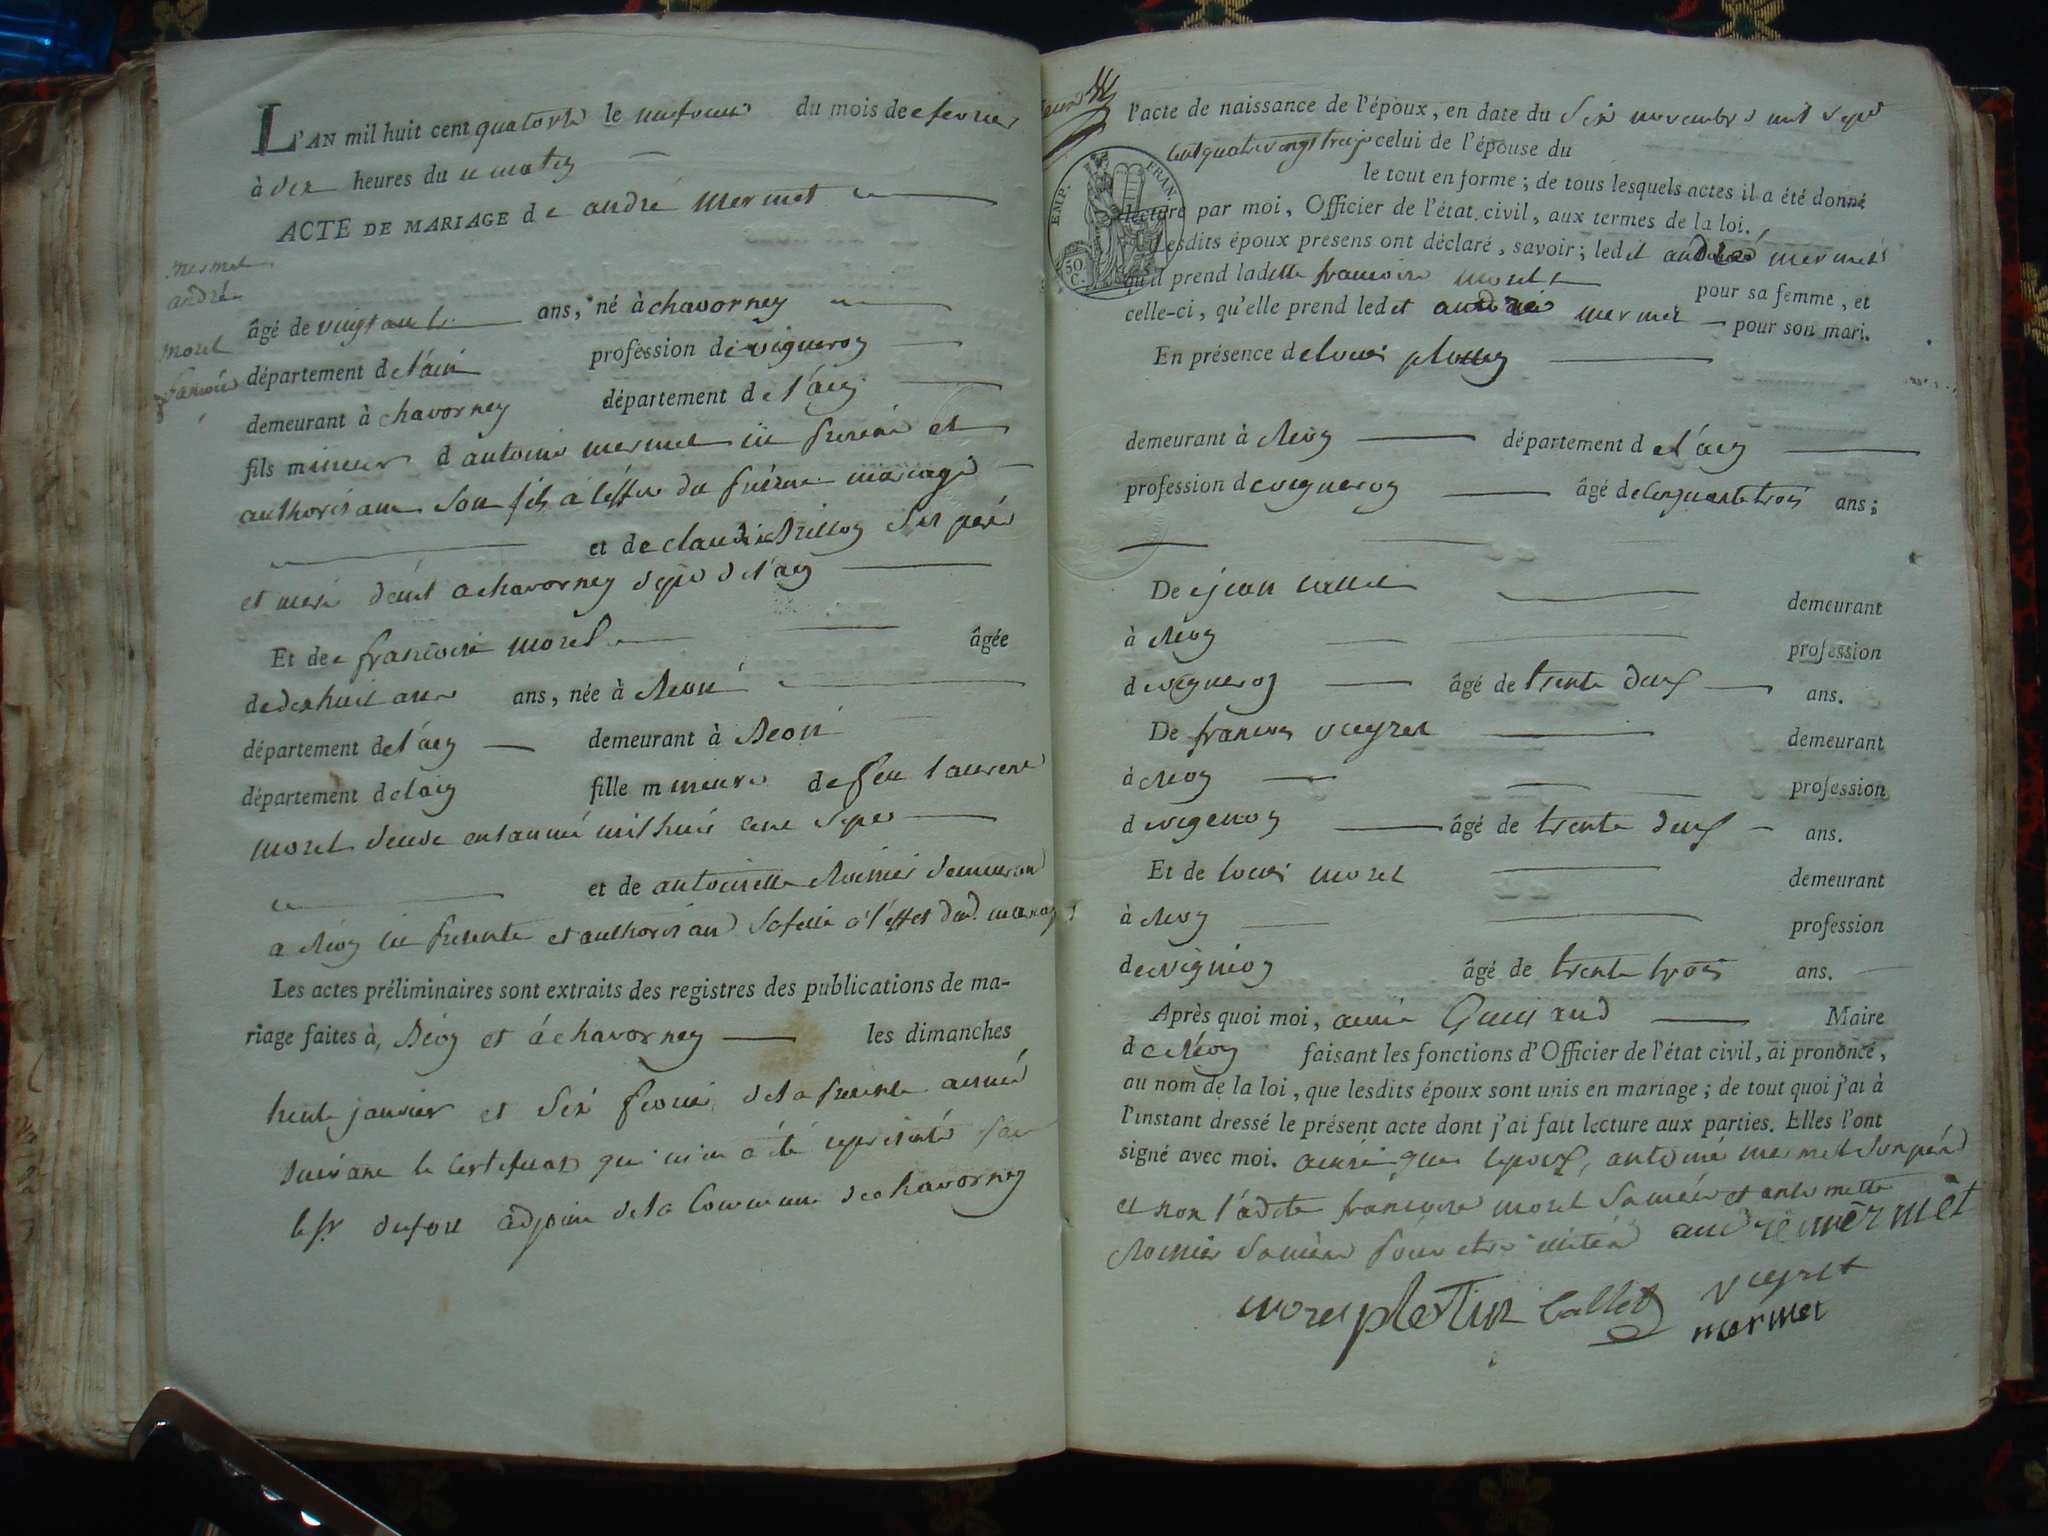 L'AN mil huit cent quatorze le neufvieme du mois de fevrier
à dix heures du matin
ACTE DE MARIAGE de andré mermet
mermet
andré
âgé de vingt ans, né à chavorney
morel
département de l'ain profession de vigneron
demeurant à chavorney département de l'ain
fils mineur d'antoine mermet ici present et
authorisant son fils à l'effet du present mariage
et de claudine Brillon ses pere
et mere demt a chavorney dept de l'ain
Et de francoise morel âgée
de dixhuit ans ans, née à Béon
département de l'ain demeurant à Béon
département de l'ain fille mineure de feu laurent
morel décédé en l'année mil huit cent sept
et de antoinette demeurant
a Béon ici presente et authorisant sa fille a l'effet dud. mariage
Les actes préliminaires sont extraits des registres des publications de ma-
riage faites à, Béon et à chavorney les dimanches
trente janvier et six fevrier de la presente année
suivant le certificat qui m'a été representé par
le sr dufour adjoint de la commune de chavorney
l'acte de naissance de l'époux, en date du six novembre mil sept
cent quatre vingt treize celui de l'épouse du
le tout en forme; de tous lesquels actes il a été donné
lecture par moi, Officier de l'état civil, aux termes de la loi.
EMP. FRAN.
50 C.
Lesdits époux présens ont déclaré, savoir; ledit andré mermet
qu'il prend ladite francoise morel pour sa femme, et
celle-ci, qu'elle prend ledit andré mermet pour son mari.
En présence de louis
demeurant à Béon département de l'ain
profession de vigneron âgé de cinquante trois ans;
De jean callet demeurant
à Béon profession
de vigneron âgé de trente deux ans.
De francois veyret demeurant
à Béon profession
de vigneron âgé de trente deux ans.
Et de louis morel demeurant
à Béon profession
de vigneron âgé de trente trois ans.
Après quoi moi, aimé Guiraud Maire
de Béon faisant les fonctions d'Officier de l'état civil, ai prononcé,
au nom de la loi, que lesdits époux sont unis en mariage; de tout quoi j'ai à
l'instant dressé le présent acte dont j'ai fait lecture aux parties. Elles l'ont
signé avec moi. ainsi que l'epoux, antoine mermet son pere
et non ladite francoise morel antoinette
sa mere pour etre andré mermet
morel pletin callet veyret
mermet